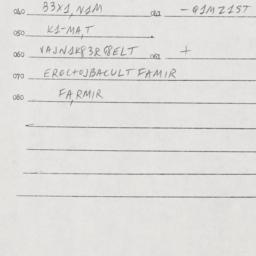 040 33X1,N1M 041 -01MZ1ST
050 K1-MA,T
060 VAJN1K83R8ELT 061 +
070 EROC+OJBACULT FAMIR
080 FA,RMIR